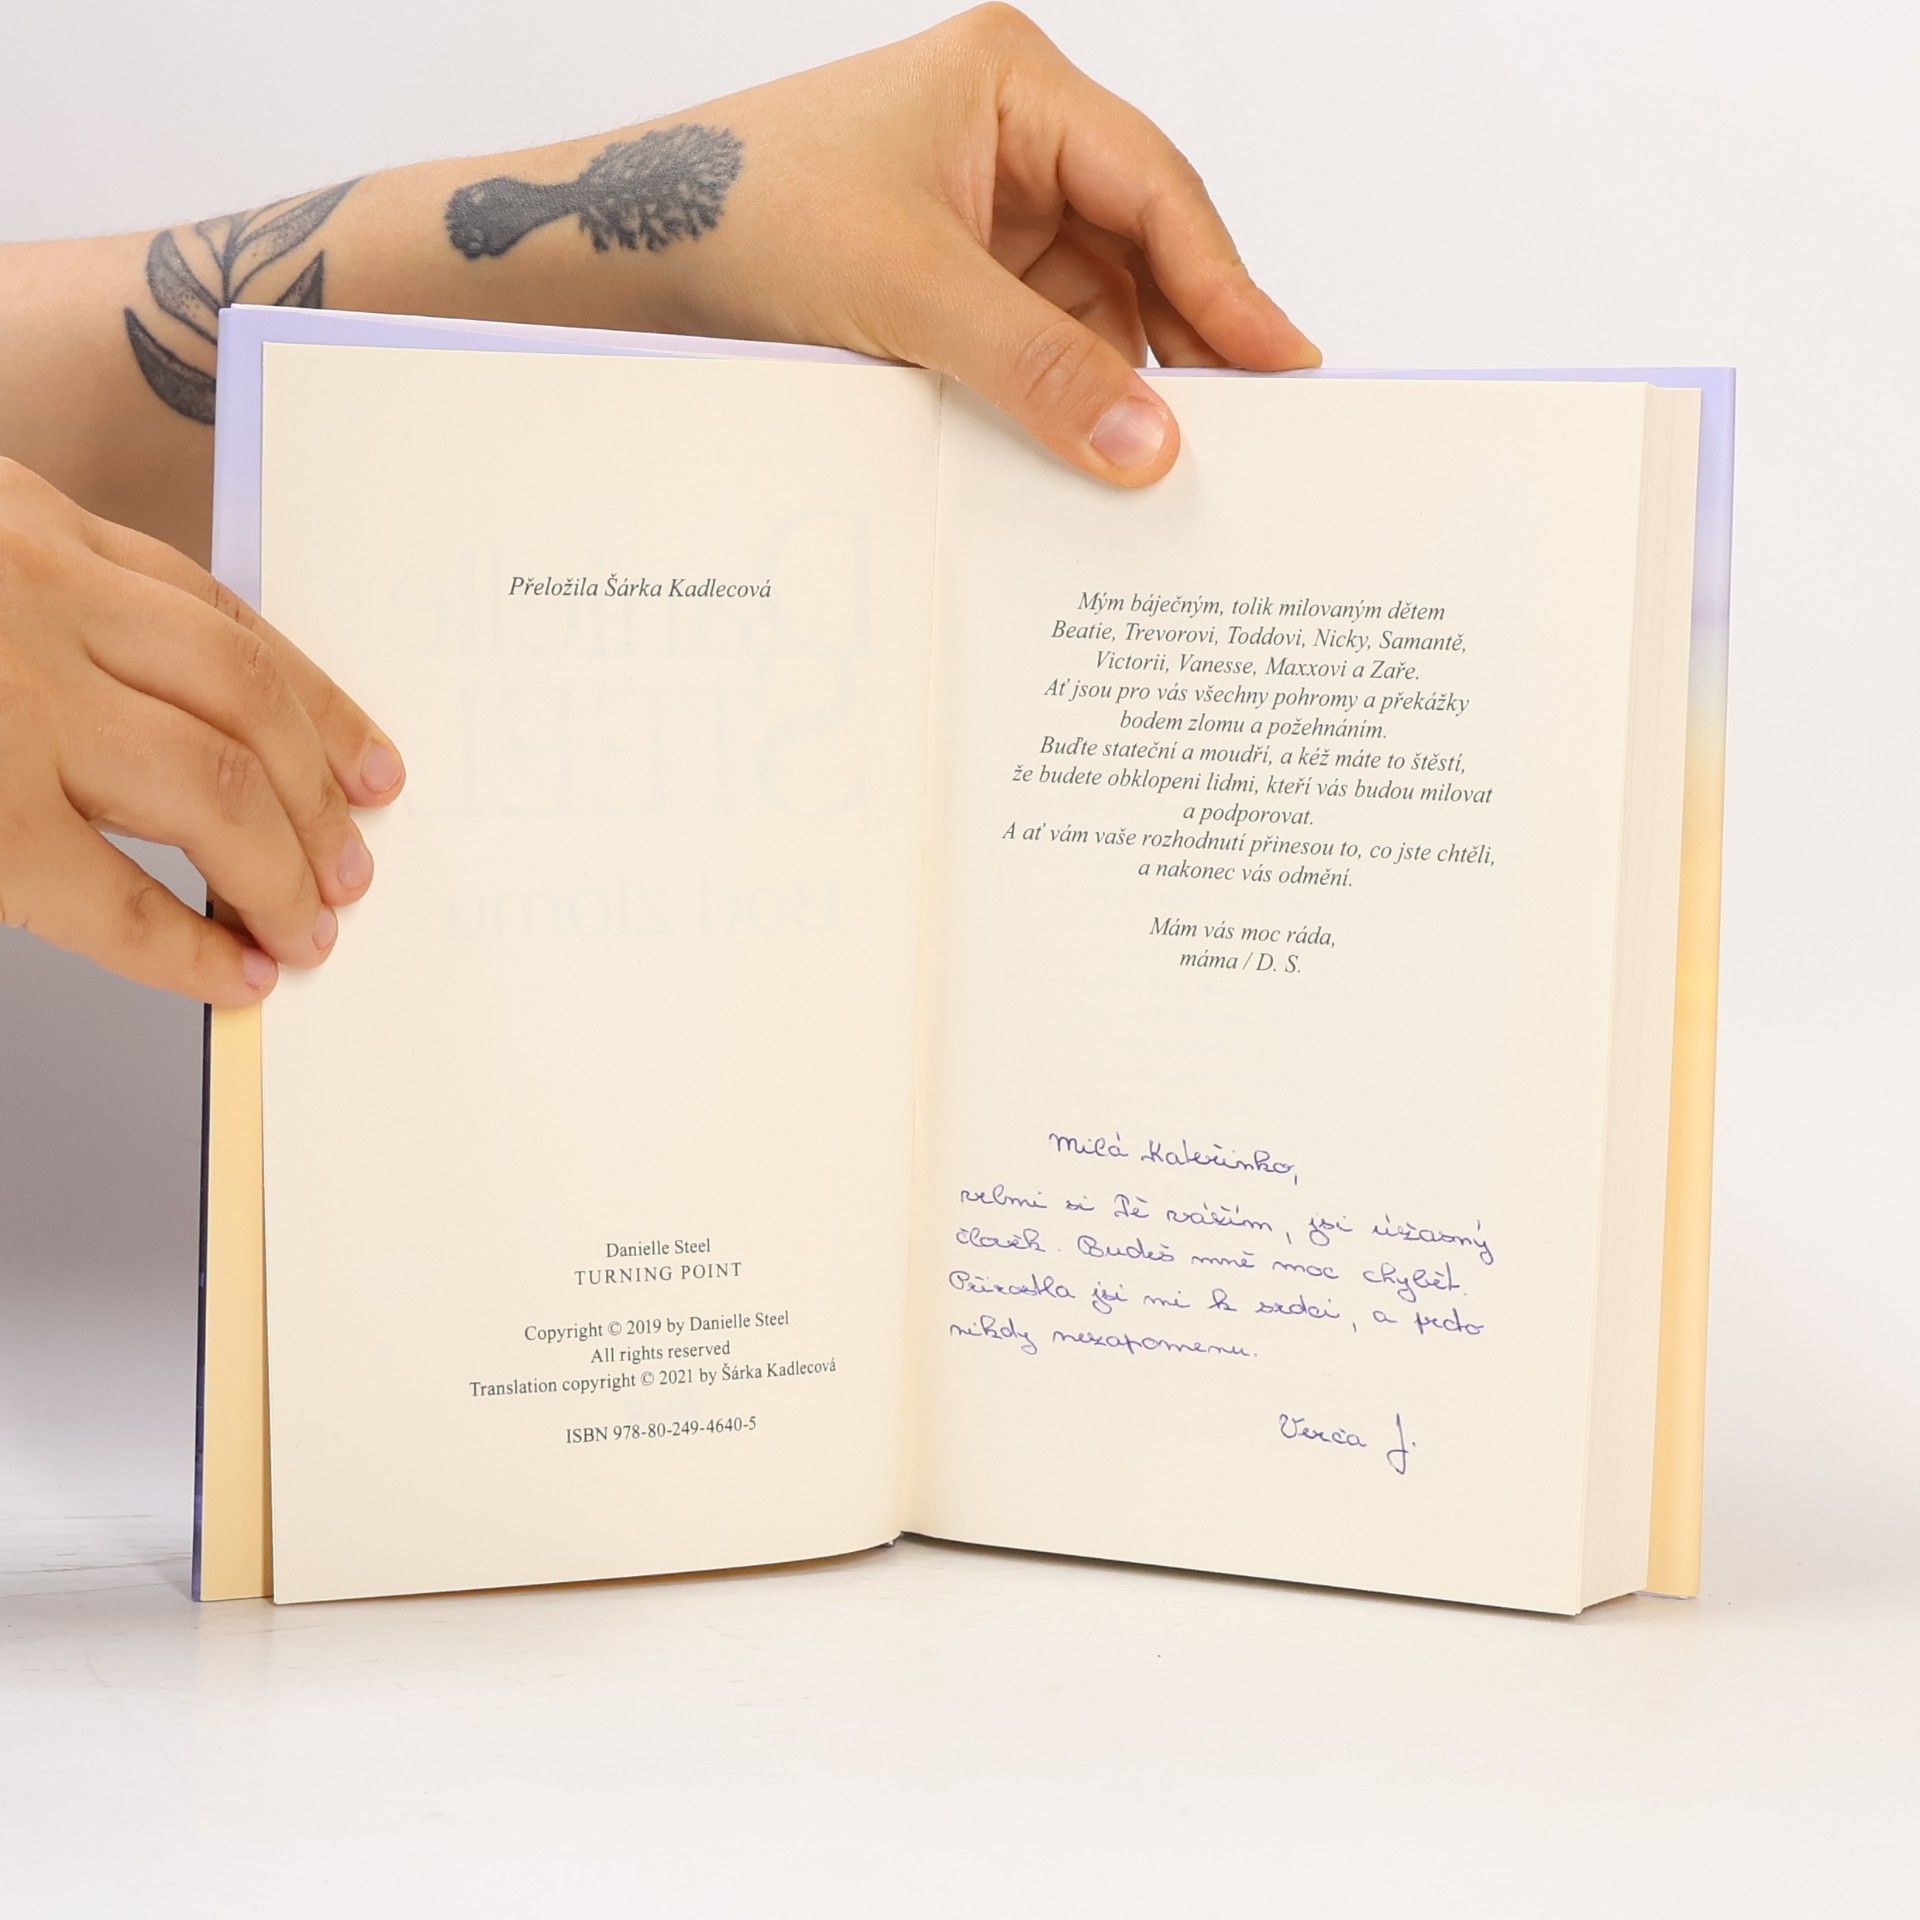 Přeložila Šárka Kadlecová
Danielle Steel
TURNING POINT
Copyright © 2019 by Danielle Steel
All rights reserved
Translation copyright © 2021 by Šárka Kadlecová
ISBN 978-80-249-4640-5
Mým báječným, tolik milovaným dětem
Beatie, Trevorovi, Toddovi, Nicky, Samantě,
Victorii, Vanesse, Maxxovi a Zaře.
Ať jsou pro vás všechny pohromy a překážky
bodem zlomu a požehnáním.
Buďte stateční a moudří, a kéž máte to štěstí,
že budete obklopeni lidmi, kteří vás budou milovat
a podporovat.
A ať vám vaše rozhodnutí přinesou to, co jste chtěli,
a nakonec vás odmění.
Mám vás moc ráda,
máma / D. S.
Milá Kateřinko,
velmi si Tě vážím, jsi úžasný
člověk. Budeš mně moc chybět.
Přirostla jsi mi k srdci, a proto
nikdy nezapomenu.
Verča J.